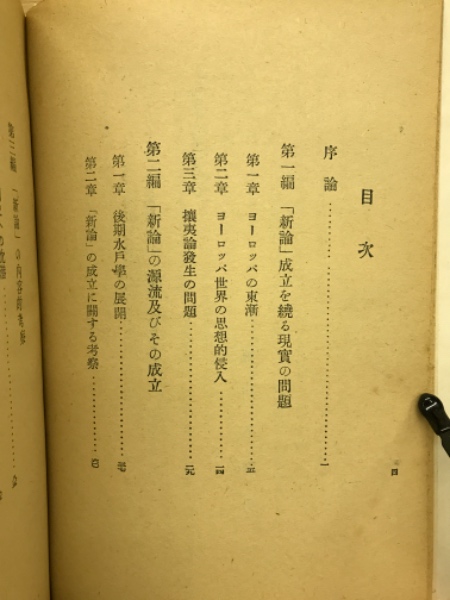 目次
序論……………一
第一編 「新論」成立を繞る現實の問題
第一章 ヨーロッパの東漸……………三
第二章 ヨーロッパ世界の思想的侵入……………一四
第三章 攘夷論發生の問題……………二九
第二編 「新論」の源流及びその成立
第一章 後期水戸學の展開……………
第二章 「新論」の成立に關する考察……………
四
第三編 「新論」の内容的考察